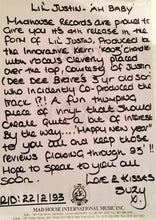 LIL' JUSTIN - 'AH BABY'
MADHOUSE RECORDS ARE PROUD TO
GIVE YOU IT'S 4TH RELEASE IN THE
FORM OF LIL' JUSTIN. PRODUCED BY
THE INNOVATIVE KERRI 'KAOZ' CHANDLER
WITH VOCALS CLEVERLY PLACED
OVER THE TOP COURTESY OF JUSTIN
(DEE DEE BRAVE'S 3 YR OLD SON
WHO INCIDENTLY CO-PRODUCED THE
TRACK?!) A FUN THUMPING
PIECE OF VINYL THAT SHOULD
CHANGE
BY THE WAY.... 'HAPPY NEW YEAR'
TO YOU ALL AND KEEP THOSE
REVIEWS FLOWING THROUGH '93'!!
HOPE TO SPEAK TO YOU ALL
SOON.
LOVE & KISSES
SUZY
X.
R/D: 22/2/93
MAD HOUSE INTERNATIONAL MUSIC INC.